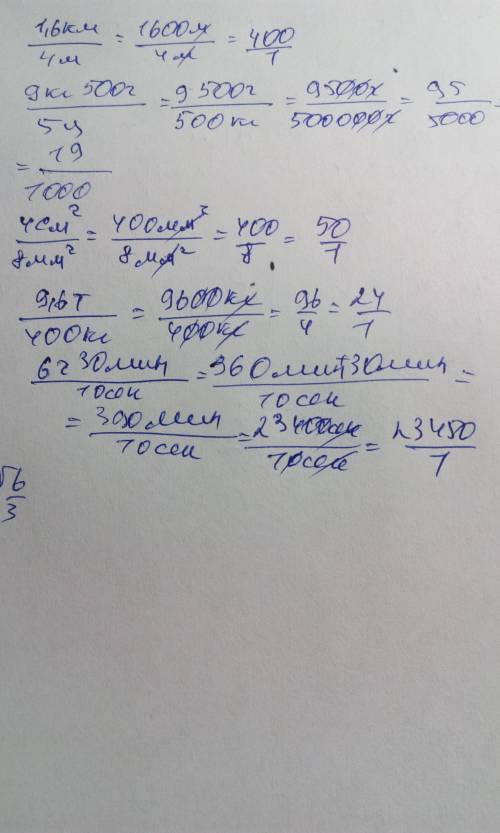 1,6км/4м = 1600м/4м = 400/1
9кг 500г/5ц = 9 500г/500кг = 9500г/500000г = 95/5000
= 19/1000
4см²/8мм² = 400мм²/8мм² = 400/8 = 50/1
9,6т/400кг = 9600кг/400кг = 96/4 = 24/1
6ч 30мин/10сек = 360мин+30мин/10сек =
= 390мин/10сек = 23400сек/10сек = 23450/1
56/3